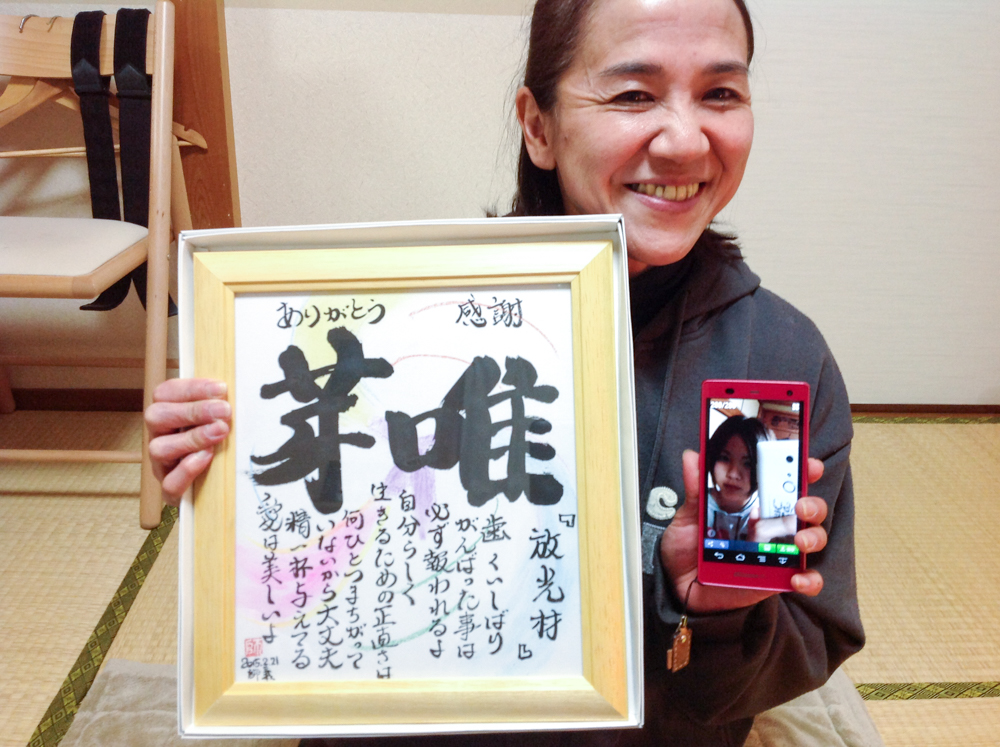 感謝
ありがとう
唯芽
『放光材』
歯くいしばり
がんばった事は
必ず報われるよ
自分らしく
生きるための正直さは
何ひとつまちがって
いないから大丈夫
精一杯与えてる
愛は美しいよ
2015.2.21